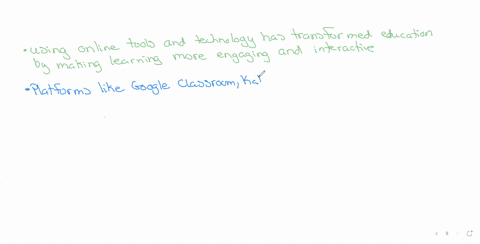 •using online tools and technology has transformed education
by making learning more engaging and interactive
•Platforms like Google Classroom, Ka